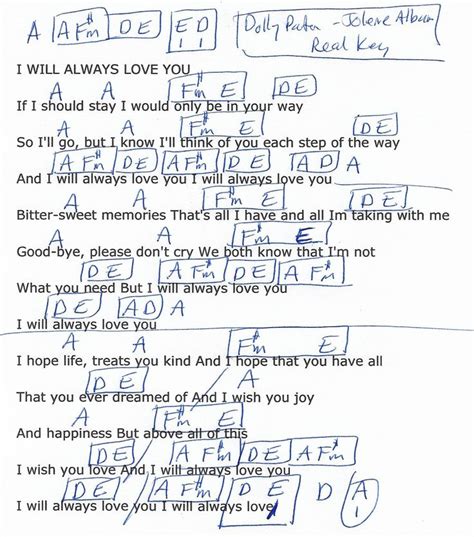 A A F#m D E E D Dolly Parton - Jolene Album
Real Key
I WILL ALWAYS LOVE YOU
A A F#m E D E
If I should stay I would only be in your way
A A F#m E D E
So I'll go, but I know I'll think of you each step of the way
A F#m D E A F#m D E A D A
And I will always love you I will always love you
A A F#m E D E
Bitter-sweet memories That's all I have and all Im taking with me
A A F#m E
Good-bye, please don't cry We both know that I'm not
D E A F#m D E A F#m
What you need But I will always love you
D E A D A
I will always love you
A A F#m E
I hope life, treats you kind And I hope that you have all
D E A
That you ever dreamed of And I wish you joy
A F#m E
And happiness But above all of this
D E A F#m D E A F#m
I wish you love And I will always love you
D E A F#m D E D A
I will always love you I will always love